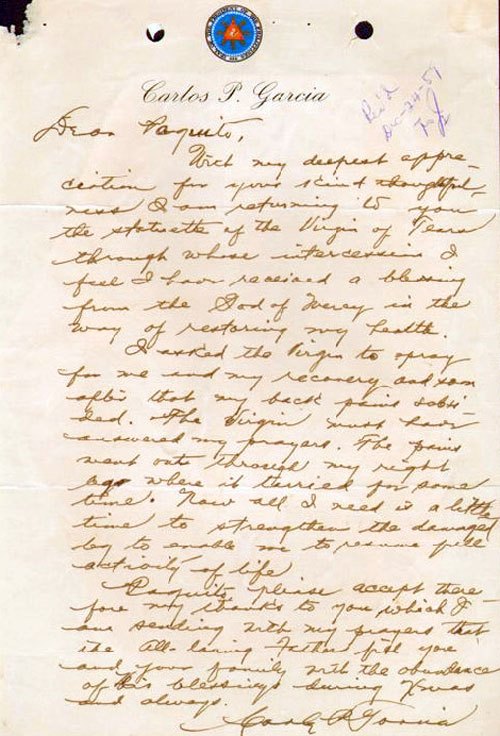 SEAL OF THE PRESIDENT OF THE PHILIPPINES
Carlos P. Garcia
Rec'd
Dec-24-59
Dear Paquito,
With my deepest appre-
ciation for your kind thoughtful-
ness I am returning to you
the statuette of the Virgin of Tears
through whose intercession I
feel I have received a blessing
from the God of Mercy in the
way of restoring my health.
I asked the Virgin to pray
for me and my recovery and soon
after that my back pains subsi-
ded. The Virgin must have
answered my prayers. The pains
went out through my right
leg where it tarried for some
time. Now all I need is a little
time to strengthen the damaged
leg to enable me to resume full
activity of life
Paquito, please accept there
fore my thanks to you which I
am sending with my prayers that
the All-loving Father fill you
and your family with the abundance
of His blessings during Xmas
and always.
Carlos P. Garcia